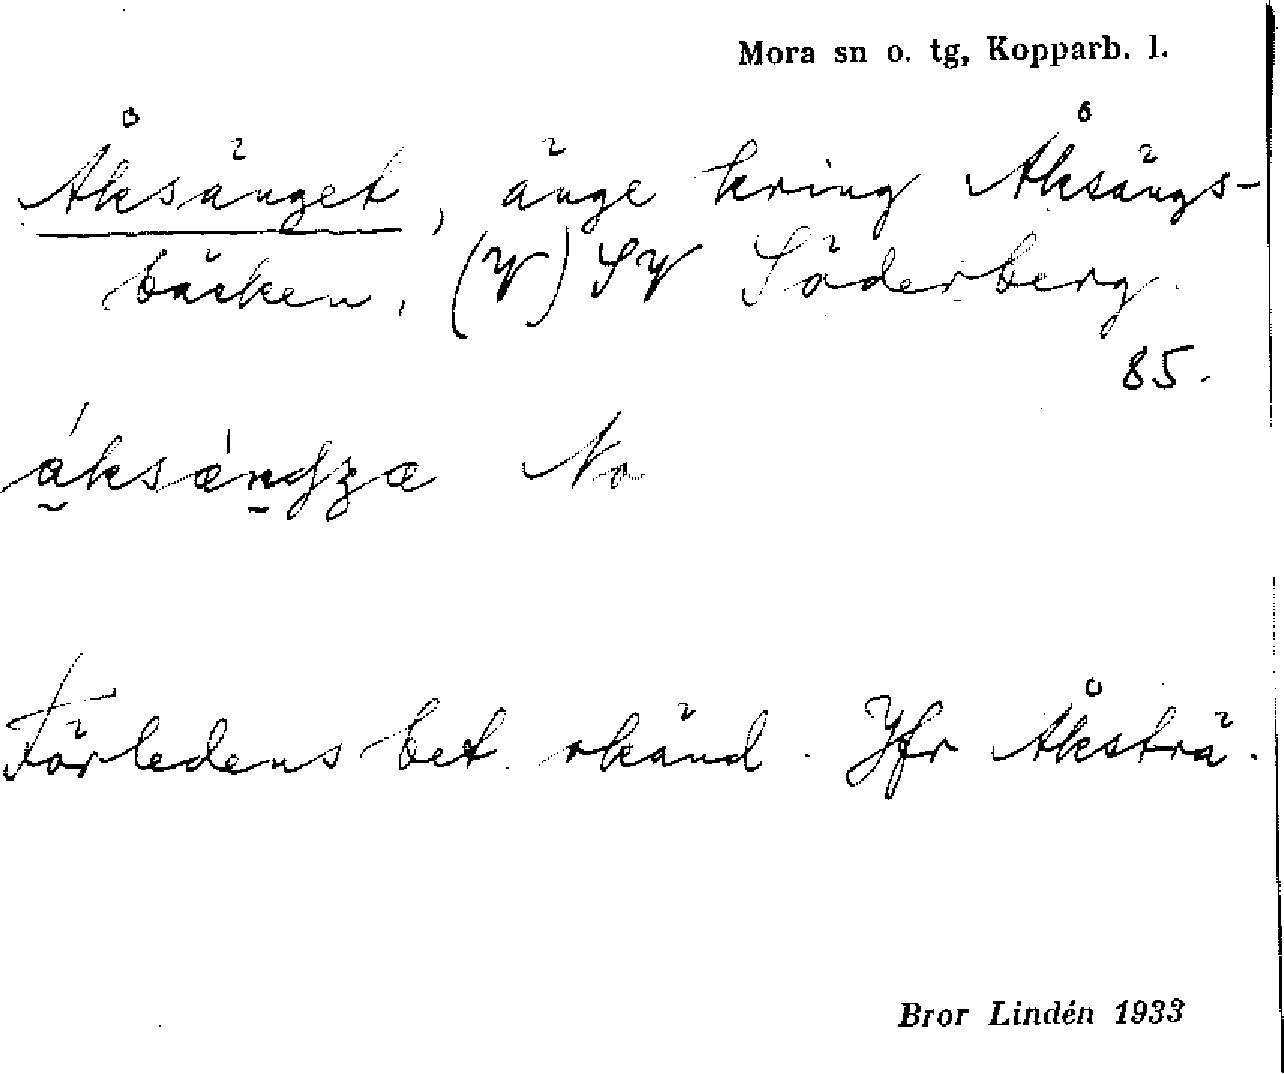 Mora sn o. tg, Kopparb. l.
Åksänget, änge kring Åksängs-
bäcken, (V) SV Söderberg.
85.
áksǽndzæ No
Förledens bet. okänd. Jfr Åksträ.
Bror Lindén 1933